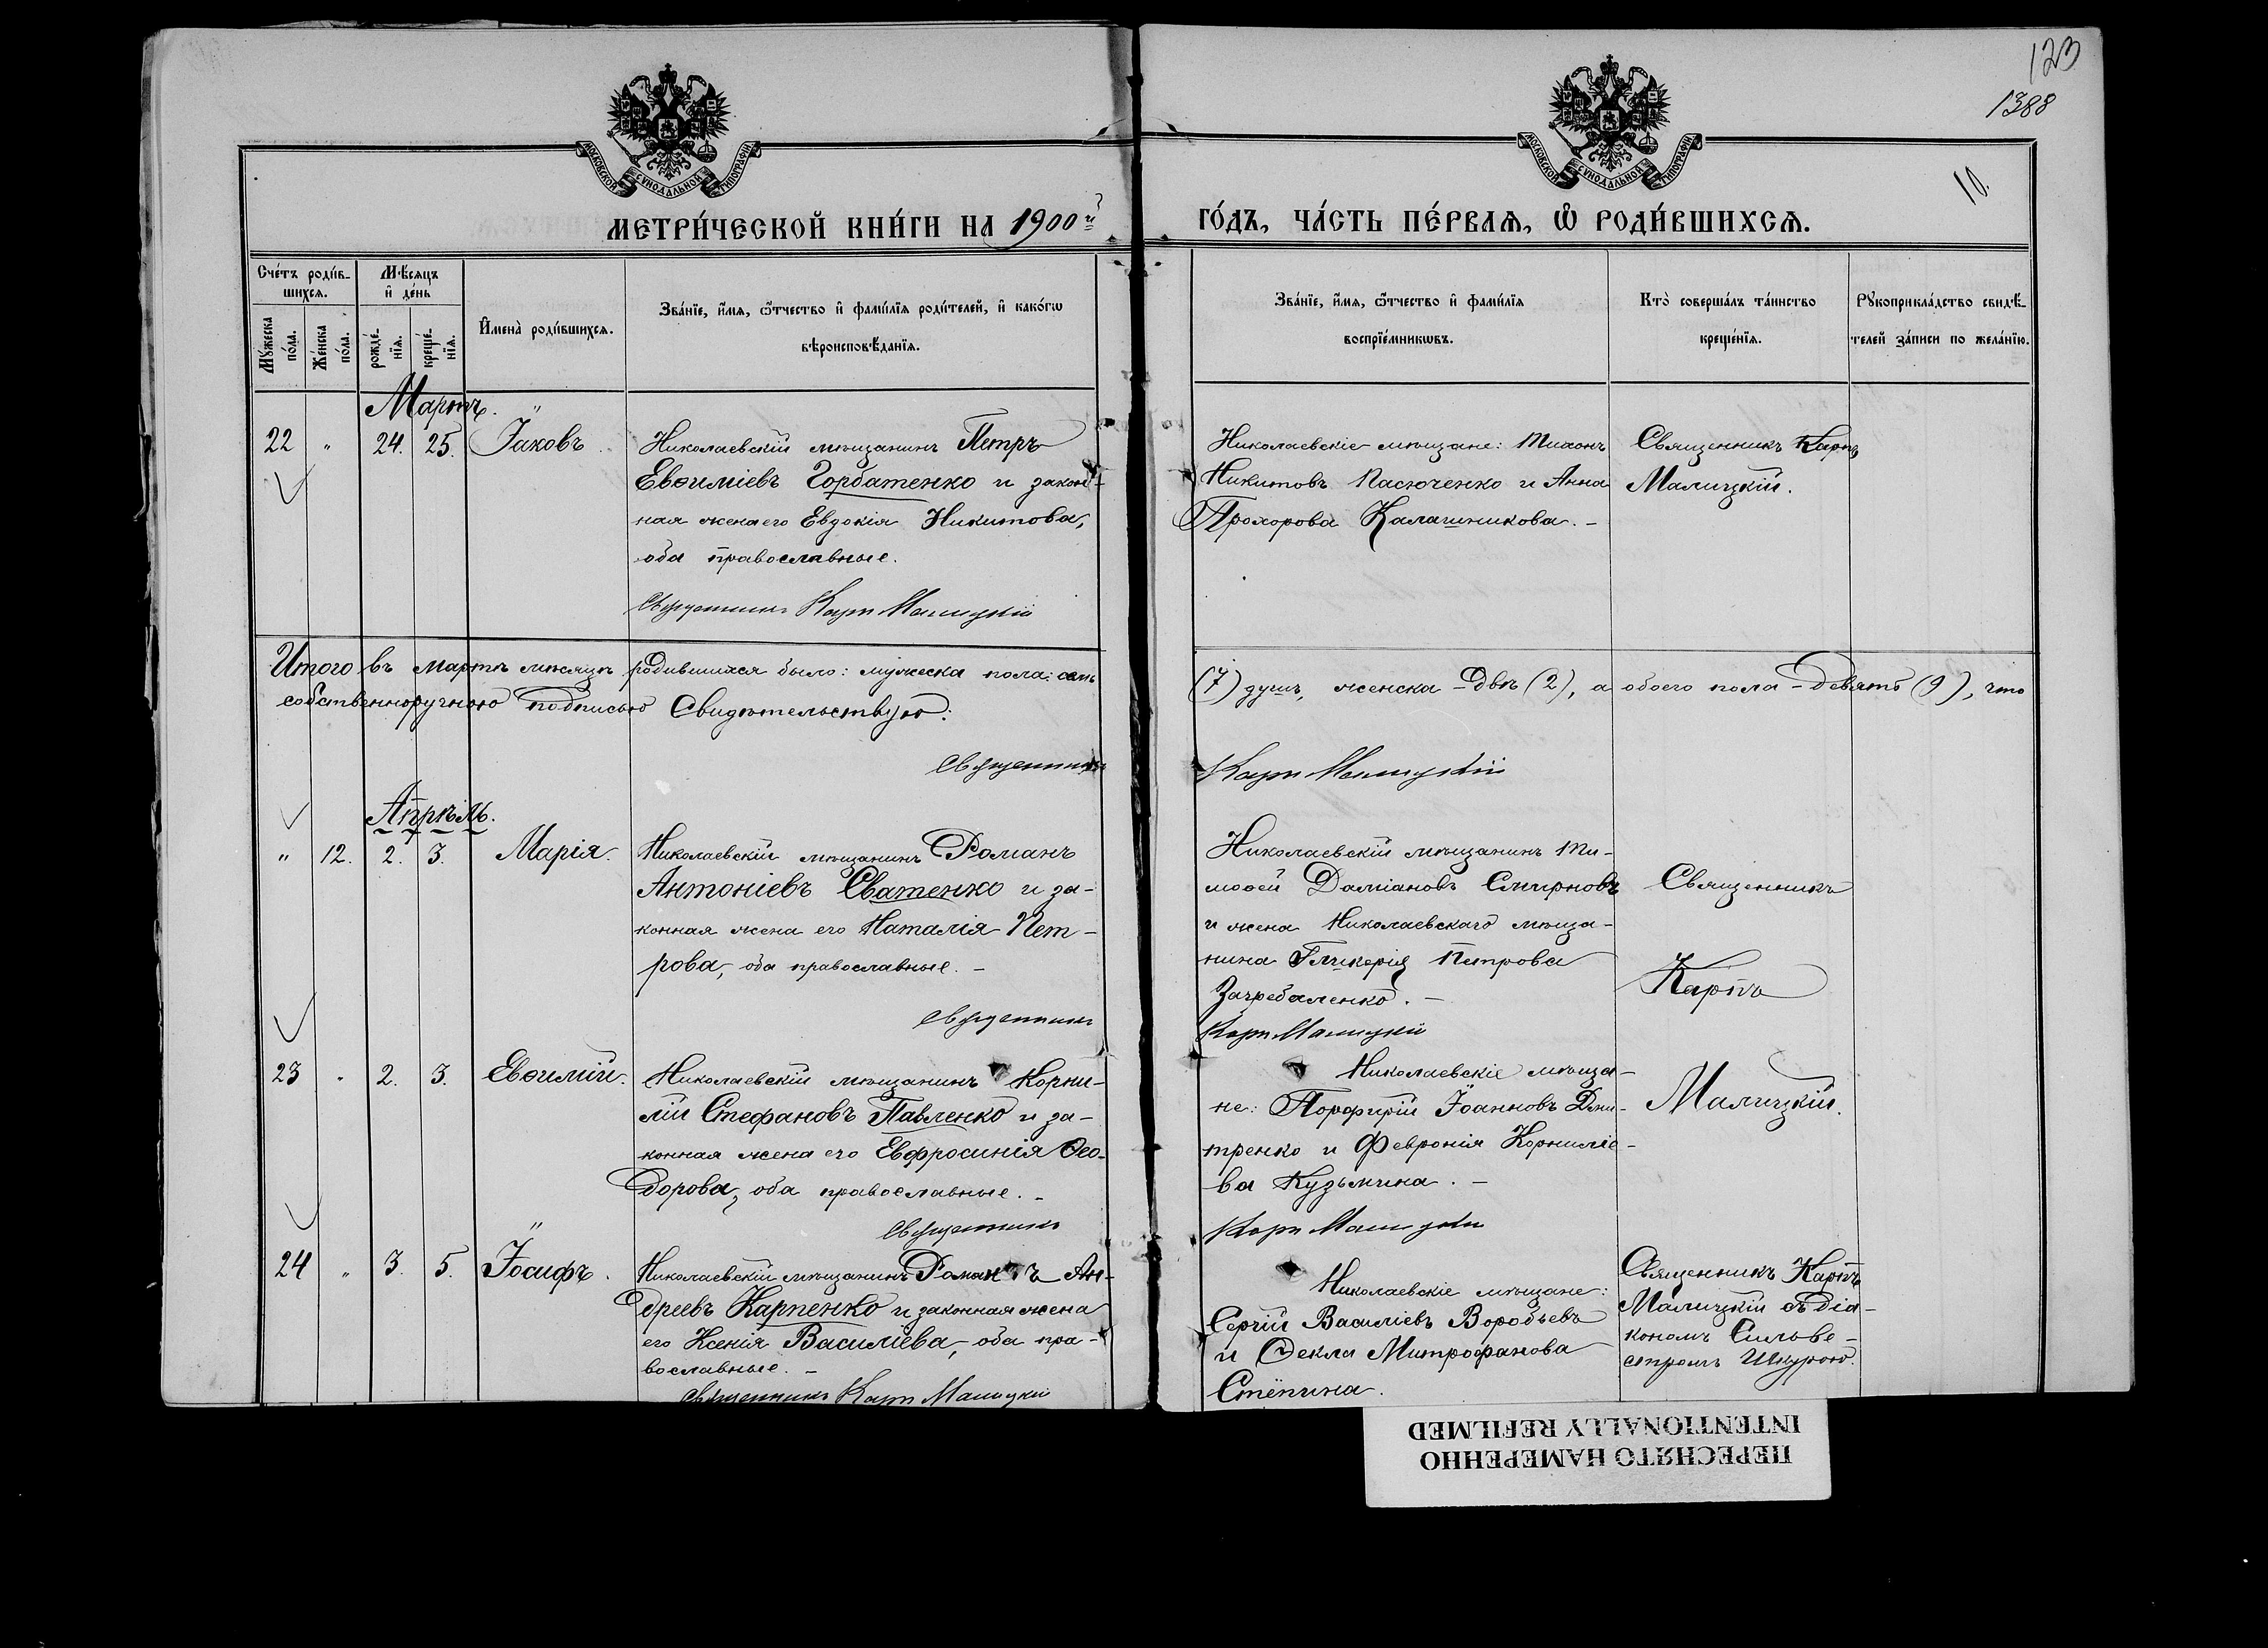 123
1388
10.
МОСКОВСКОЙ СУНОДАЛЬНОЙ ТИПОГРАФІИ
МОСКОВСКОЙ СУНОДАЛЬНОЙ ТИПОГРАФІИ
МЕТРИ́ЧЕСКОЙ КНИ́ГИ НА 1900й
ГО́ДЪ, ЧА́СТЬ ПЕ́РВАѦ, Ѡ РОДИ́ВШИХСѦ.
Сче́тъ роди́в-
шихсѧ.
Мꙋ́жеска по́ла.
Же́нска по́ла.
Мѣ́сяцъ
и҆ де́нь
рожде́-
нїѧ.
креще́-
нїѧ.
И҆мена̀ роди́вшихсѧ.
Зва́нїе, и҆́мѧ, ѻ҆́тчество и҆ фамѝлїѧ роди́телей, и҆ како́гѡ
вѣроисповѣ́данїѧ.
Зва́нїе, и҆́мѧ, ѻ҆́тчество и҆ фамѝлїѧ
воспрїе́мникѡвъ.
Кто̀ соверша́лъ та́инство
креще́нїѧ.
Рꙋкоприкла́дство свидѣ́-
телей за́писи по жела́нїю.
Мартъ.
22 " 24. 25. Іаковъ.
Николаевскій мѣщанинъ Петръ
Евѳиміевъ Горбатенко и закон-
ная жена его Евдокія Никитова,
оба православные.
Священникъ Карпъ Малицкій
Николаевскіе мѣщане: Тихонъ
Никитовъ Пасюченко и Анна
Прохорова Калашникова. -
Священникъ Карпъ
Малицкій.
Итого въ Мартѣ мѣсяцѣ родившихся было: мужеска пола: семь
(7) душъ, женска - двѣ (2), а обоего пола - девять (9), что
собственноручною подписью Свидѣтельствую:
Священникъ
Карпъ Малицкій
Апрѣль.
" 12. 2. 3. Марія.
Николаевскій мѣщанинъ Романъ
Антоніевъ Сватенко и за-
конная жена его Наталія Пет-
рова, оба православные. -
Священникъ
Николаевскій мѣщанинъ Ти-
моѳей Даміановъ Смирновъ
и жена Николаевскаго мѣща-
нина Гликерія Петрова
Загребаленко. -
Карпъ Малицкій
Священникъ
Карпъ
Малицкій.
23 " 2. 3. Евѳимій.
Николаевскій мѣщанинъ Корни-
лій Стефановъ Павленко и за-
конная жена его Евфросинія Ѳео-
дорова, оба православные. -
Священникъ
Николаевскіе мѣща-
не: Порфирій Іоанновъ Дми-
тренко и Февронія Корниліе-
ва Кузьмина. -
Карпъ Малицкій
24 " 3. 5. Іосифъ.
Николаевскій мѣщанинъ Романъ Ан-
дреевъ Карпенко и законная жена
его Ксенія Василіева, оба пра-
вославные. -
Священникъ Карпъ Малицкій
Николаевскіе мѣщане:
Сергій Василіевъ Воробьевъ
и Ѳекла Митрофанова
Стёпина.
Священникъ Карпъ
Малицкій съ діа-
кономъ Сильве-
стромъ Шкурою.
ПЕРЕСНЯТО НАМЕРЕННО
INTENTIONALLY REFILMED